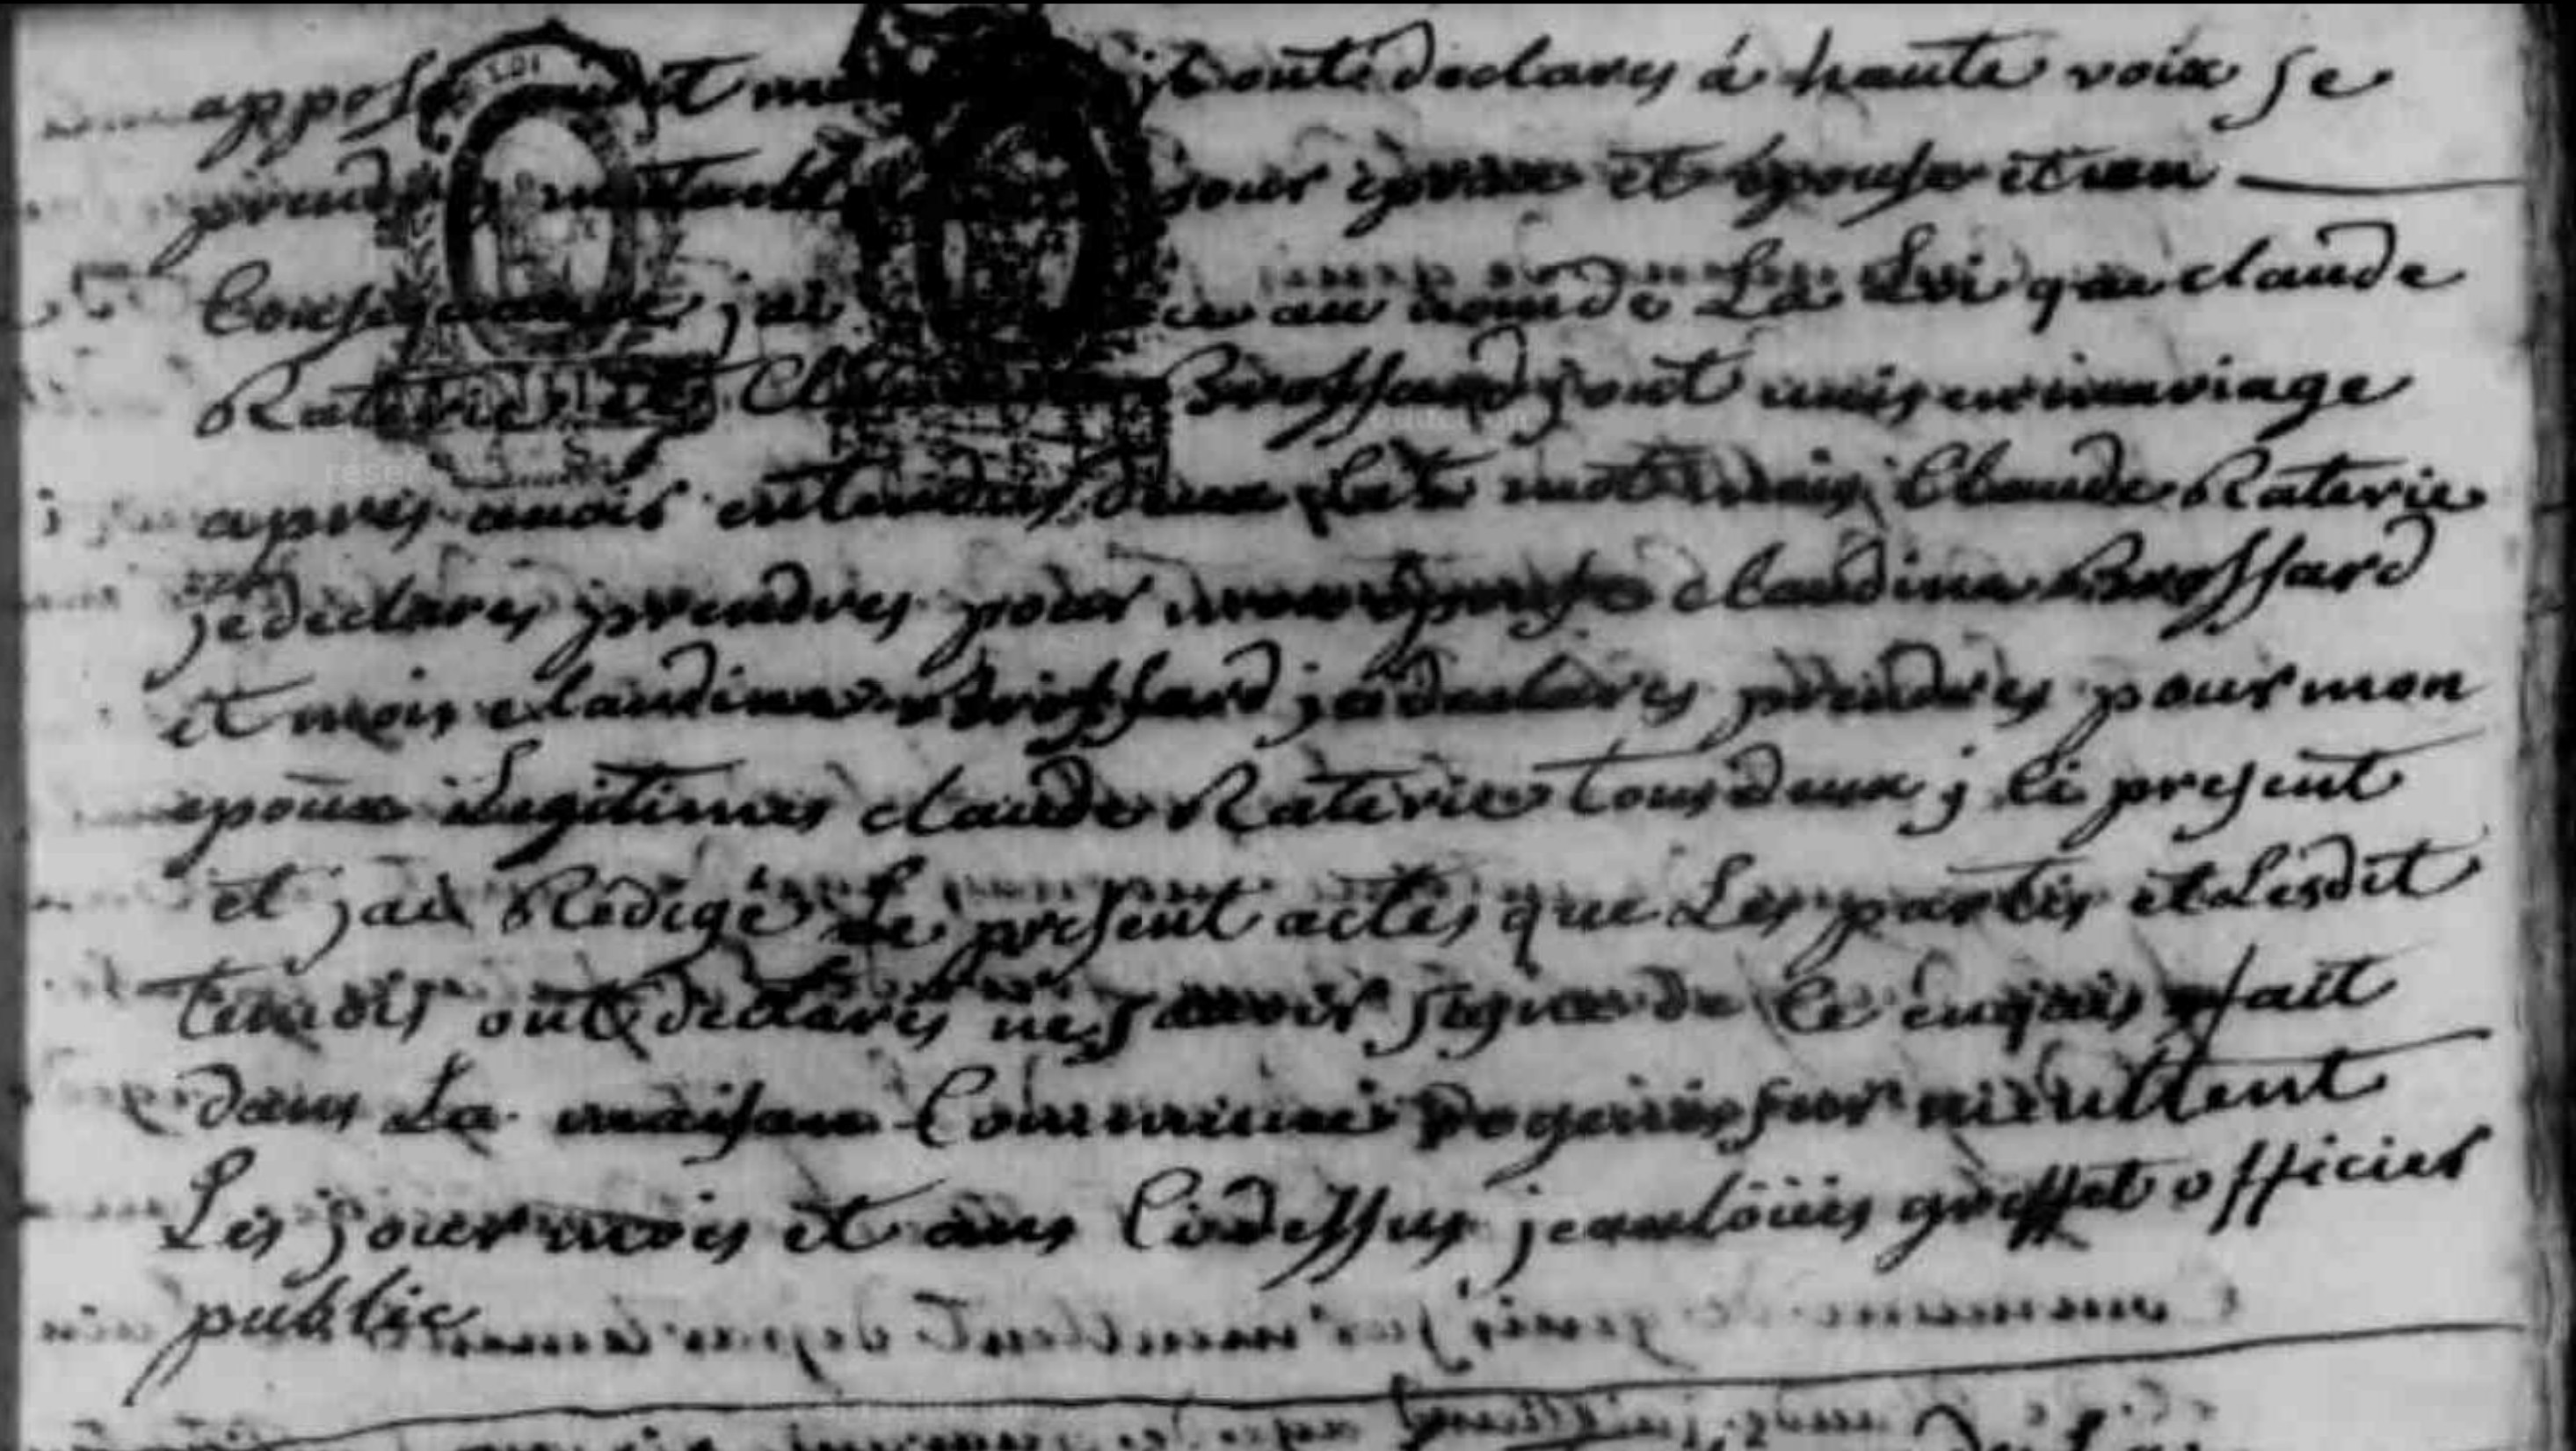 ont declares á haute voix se
prendre mutuellement pour epoux et epouse et en
Consequance jai au nom de La Loi que claude
Raterie et Brossard sont unis en mariage
apres avoir entendus deux mot mois Claude Raterie
je declares prendres pour mon epouse claudine Brossard
et mois claudine Brossard je declares prendres pour mon
epoux Legitimes claude Raterie tous deux j ci present
et jai Redigé Le present actes que Les parties et Lesdit
temois ont declares ne savoir signer de ce enquis fait
dans La maison Commune
Les jour mois et ans Cidessus jean loüis greffet officier
public